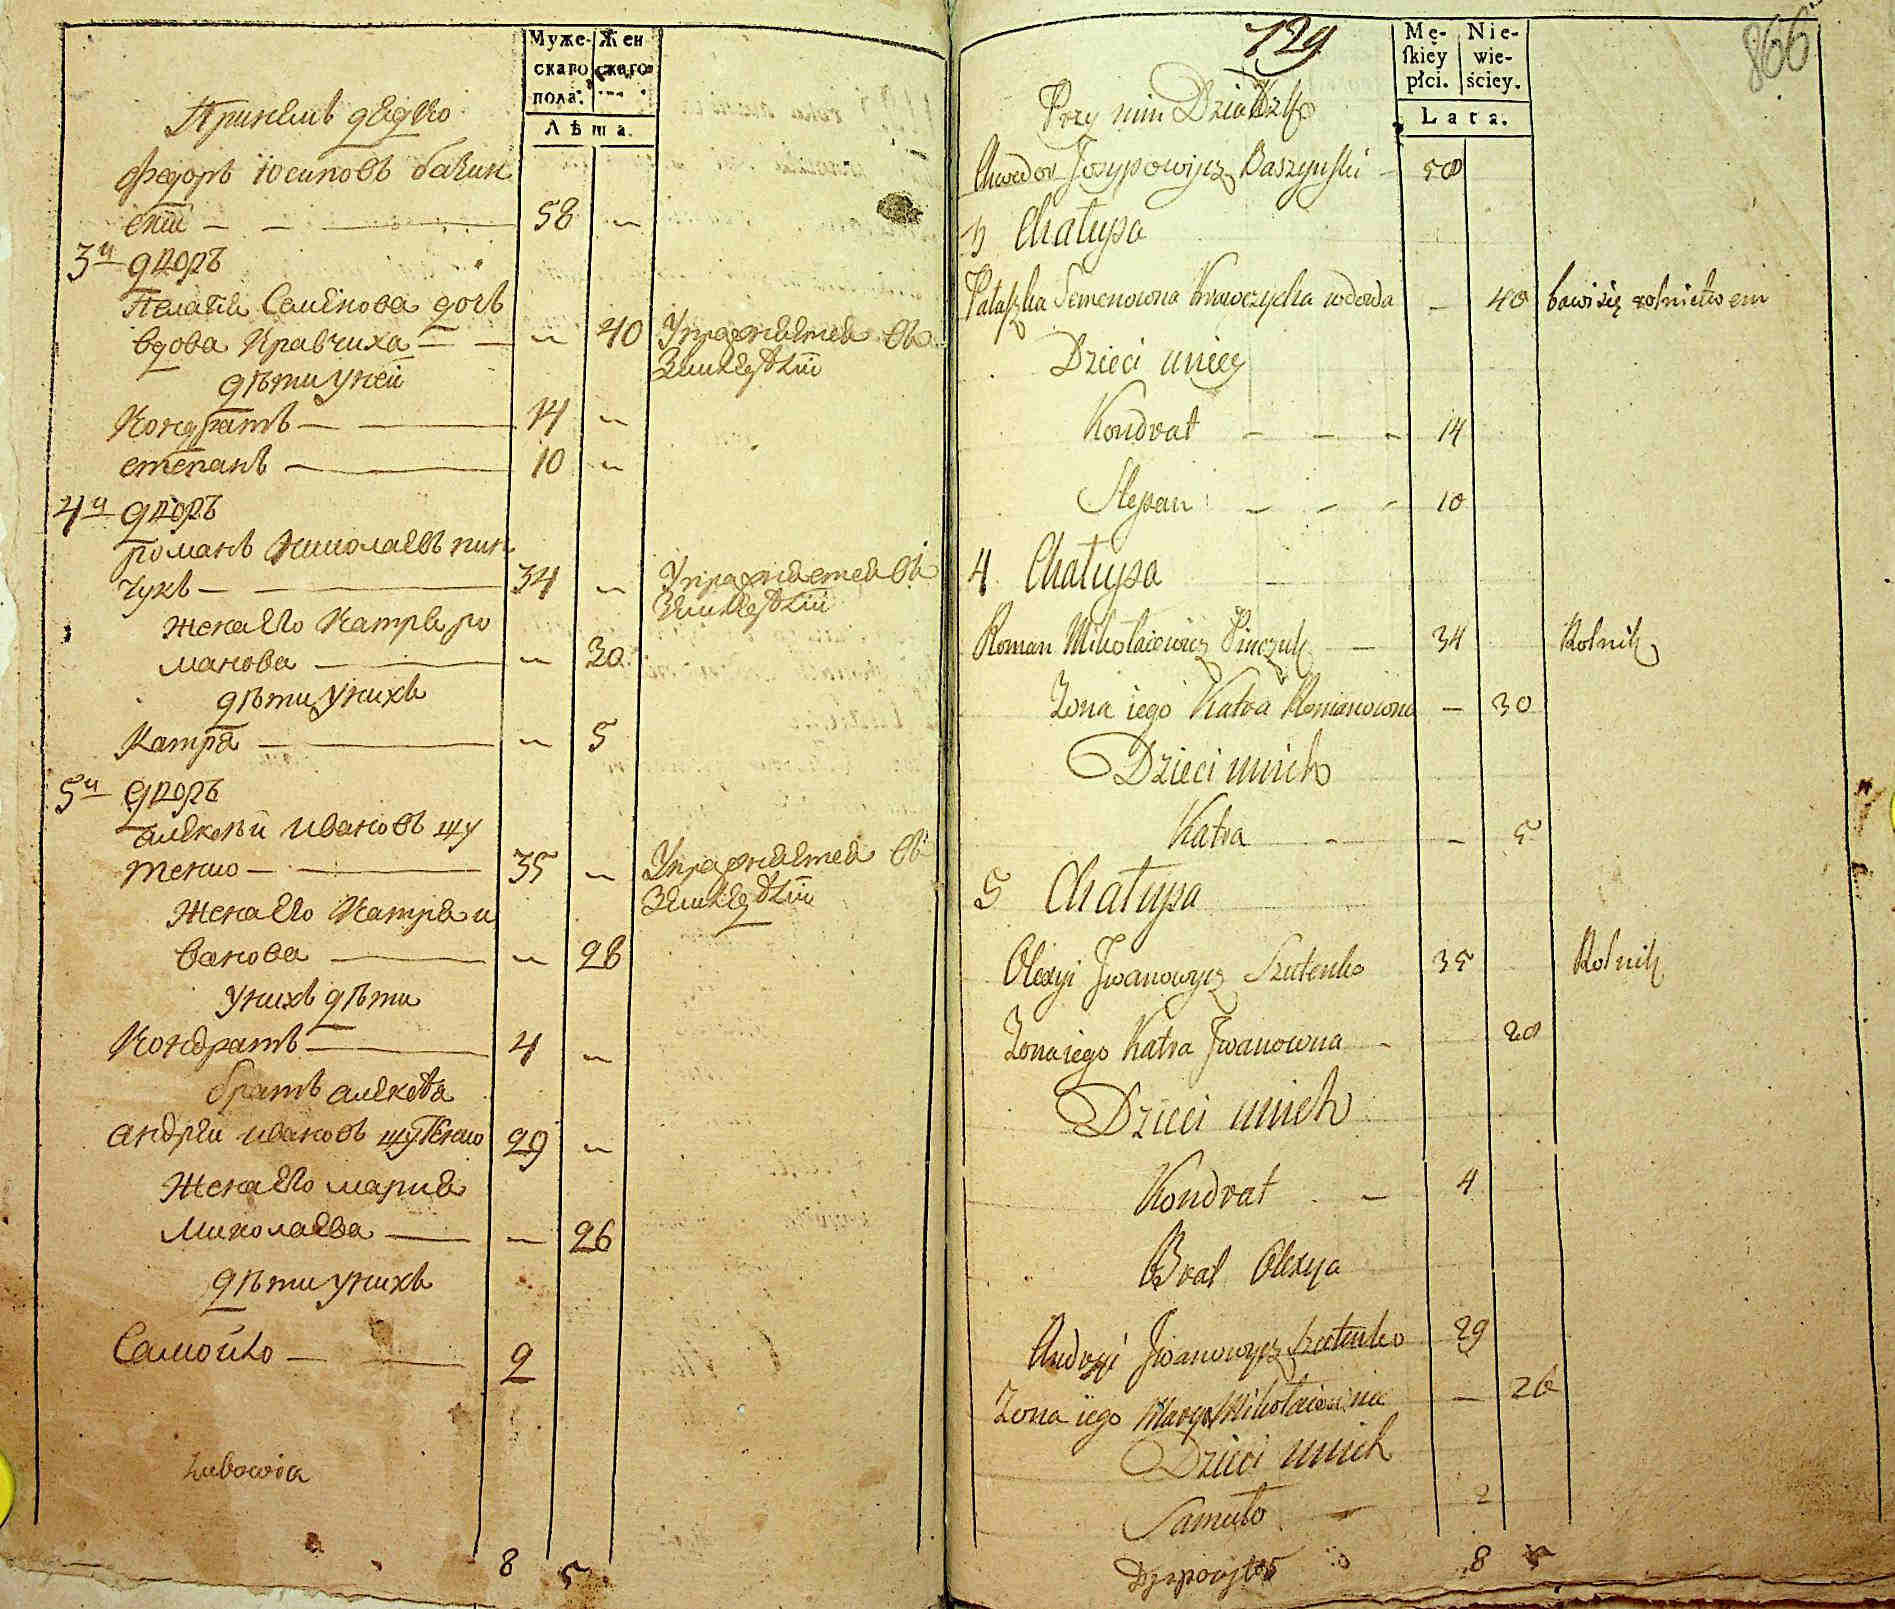 Муже- Жен
скаго скаго
пола.
Лѣта.
При немъ дедко
Федоръ Юсиповъ бачин
ский 58
3й дворъ
Пелагея Семенова дочь
вдова Кравчиха 40 Упражняется въ
земледелии
дети у ней
Кондратъ 14
степанъ 10
4й дворъ
романъ Николаевъ пин
чукъ 34 Упражняется въ
земледелии
жена его Катря ро
манова 30
дети у нихъ
Катря 5
5й дворъ
алексей Ивановъ шу
тенко 35 Упражняется въ
земледелии
жена его Катря и
ванова 28
у нихъ дети
Кондратъ 4
братъ алексея
андрей ивановъ шутенко 29
жена его мария
миколаева 26
дети у нихъ
Самойло 2
8 5
129
866
Mę- Nie-
skiey wie-
płci. ściey.
Lata.
Przy nim Dziadko
Chwedor Jozypowicz Baszynski 58
3 Chałupa
Pałaszka Semenowna Krawczycha wdowa 40 bawi się rolnictwem
Dzieci u niey
Kondrat 14
Stepan 10
4 Chałupa
Roman Mikołaiewicz Pinczuk 34 Rolnik
Zona iego Katra Romanowna 30
Dzieci u nich
Katra 5
5 Chałupa
Olexyi Jwanowycz Szutenko 35 Rolnik
Zona iego Katra Jwanowna 28
Dzieci u nich
Kondrat 4
Brat Olexya
Andryi Jwanowycz Szutenko 29
Zona iego Marya Mikołaiewna 26
Dzieci u nich
Samuło 2
8 5